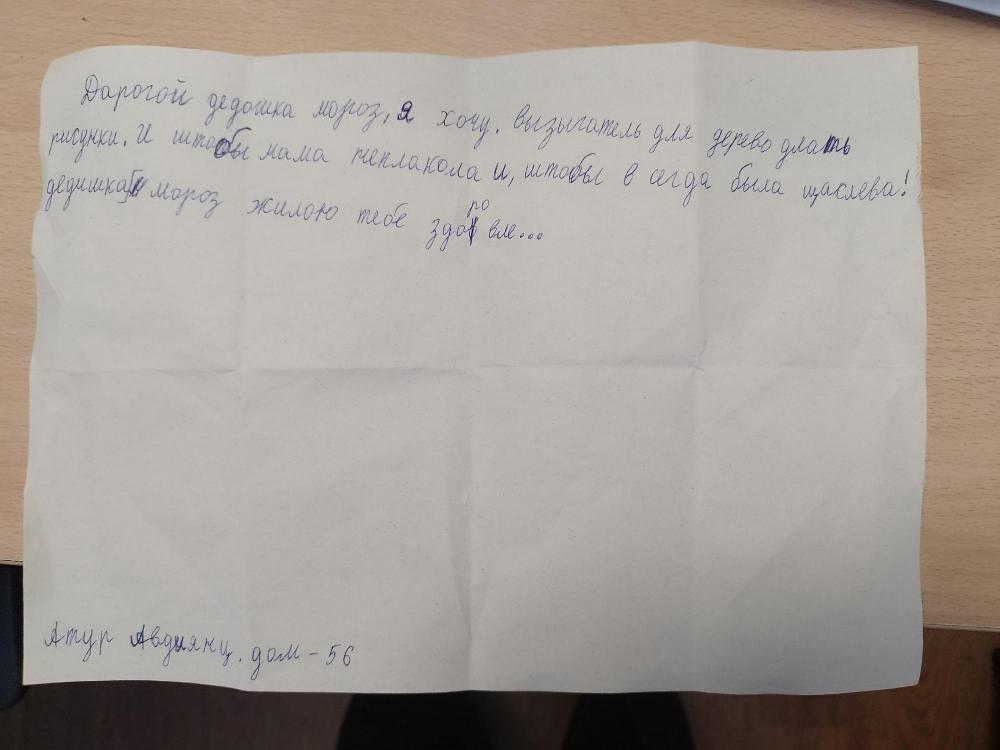 Дарогой дедошка мороз, я хочу. вызыгатель для дерево длать
рисунки. И штообы мама неплакола и, штобы в сегда была щаслева!
дедишка мороз жилаю тебе здоровле...
Атур Авдиянц. дом - 56